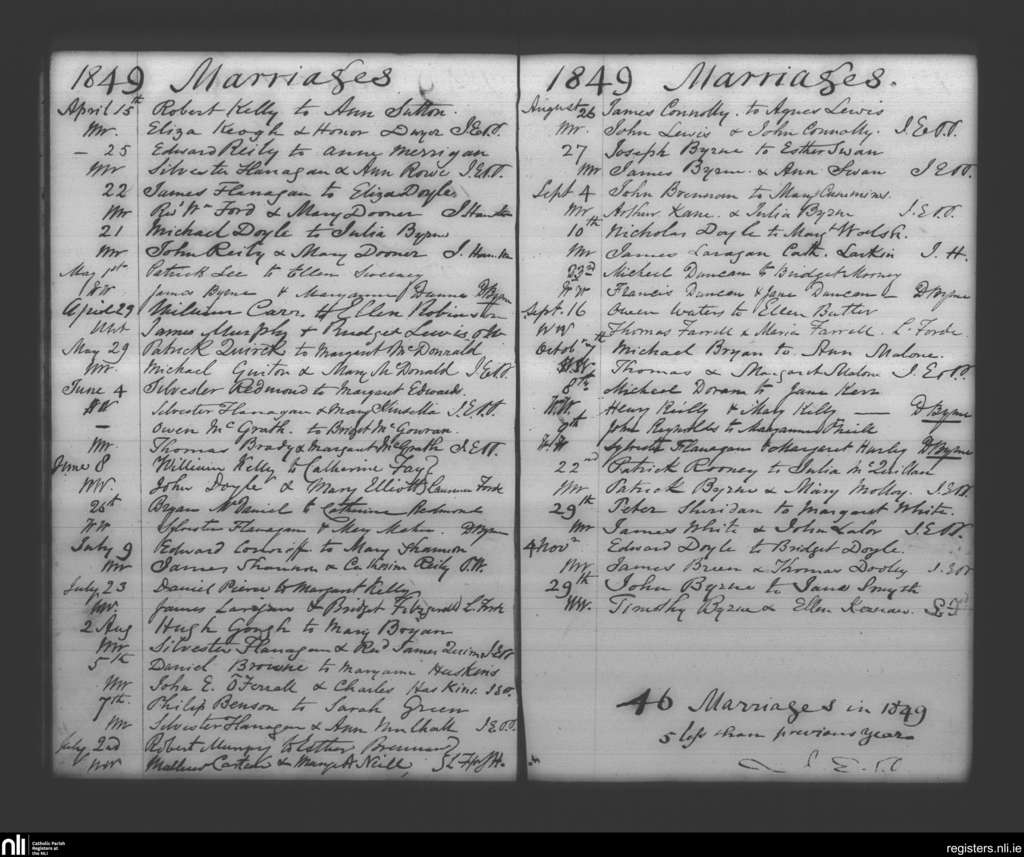 1849 Marriages
April 15th Robert Kelly to Ann Sutton
Wr. Eliza Keogh & Honor Dwyer
— 25 Edward Reily to Anne Merrigan
Wr Silvester Flanagan & Ann Rowe
22 James Flanagan to Eliza Doyle
Wr Revd Wm Ford & Mary Dooner
21 Michael Doyle to Julia Byrne
Wr John Reily & Mary Dooner
May 1st Patrick Lee to Ellen Sweeny
WW James Byrne & Maryanne Dunne D Byrne
April 29 William Carr to Ellen Robinson
James Murphy & Bridget Lawless
May 29 Patrick Quirck to Margaret McDonnald
Wr. Michael Guiton & Mary McDonald
June 4 Silvester Redmond to Margaret Edwards
WW Silvester Flanagan & Mary Kinsella
— Owen McGrath to Bridget McGowran
Wr Thomas Brady & Margaret McGrath
June 8 William Kelly to Catherine Fay
WW. John Doyle & Mary Elliott
26th Bryan McDaniel to Catherine Redmond
WW Sylvester Flanagan & Mary Maher D Byrne
July 9 Edward to Mary Shannon
Wr James Shannon & Catherine Reily
July 23 Daniel Pierce to Margaret Kelly
Wr. James Laragan & Bridget Fitzgerald L. Forde
2 Aug Hugh Gough to Mary Bryan
Wr Silvester Flanagan & Revd James Quinn
5th Daniel Browne to Maryanne Haskins
Wr John E. O'Ferrall & Charles Haskins
7th Philip Benson to Sarah Green
Wr Silvester Flanagan & Ann Mulhall
July 2nd Robert to Esther Brennan
Wr Mathew & Mary A Neill
1849 Marriages.
August 26 James Connolly to Agnes Lewis
Wr. John Lewis & John Connolly.
27 Joseph Byrne to Esther Swan
Wr James Byrne & Ann Swan
Sept 4 John Brennan to Mary Cummins
Wr. Arthur Kane & Julia Byrne
10th Nicholas Doyle to Margt Walsh.
Wr James Laragan Cath. Larkin J. H.
23rd Michael Duncan to Bridget Rooney
WW Francis Duncan & Jane Duncan — D Byrne
Sept. 16 Owen Waters to Ellen Butler
WW Thomas Farrell & Maria Farrell. L. Forde
Octob 7th Michael Bryan to Ann Malone.
Thomas & Margaret Malone
8th Michael Doram to Jane Kerr
WW. Henry Reilly & Mary Kelly — D Byrne
9th John Reynolds to Maryanne O'Neill
WW Sylvester Flanagan & Margaret Hurly D Byrne
22nd Patrick Rooney to Julia McQuillan
Wr Patrick Byrne & Mary Molloy.
29th Peter Sheridan to Margaret White.
Wr James White & John Lalor
4 Novr Edward Doyle to Bridget Doyle.
Wr. James Breen & Thomas Dooley
29th John Byrne to Jane Smyth
WW. Timothy Byrne & Ellen
46 Marriages in 1849
5 less than previous year
nli
Catholic Parish
Registers at
the NLI
registers.nli.ie